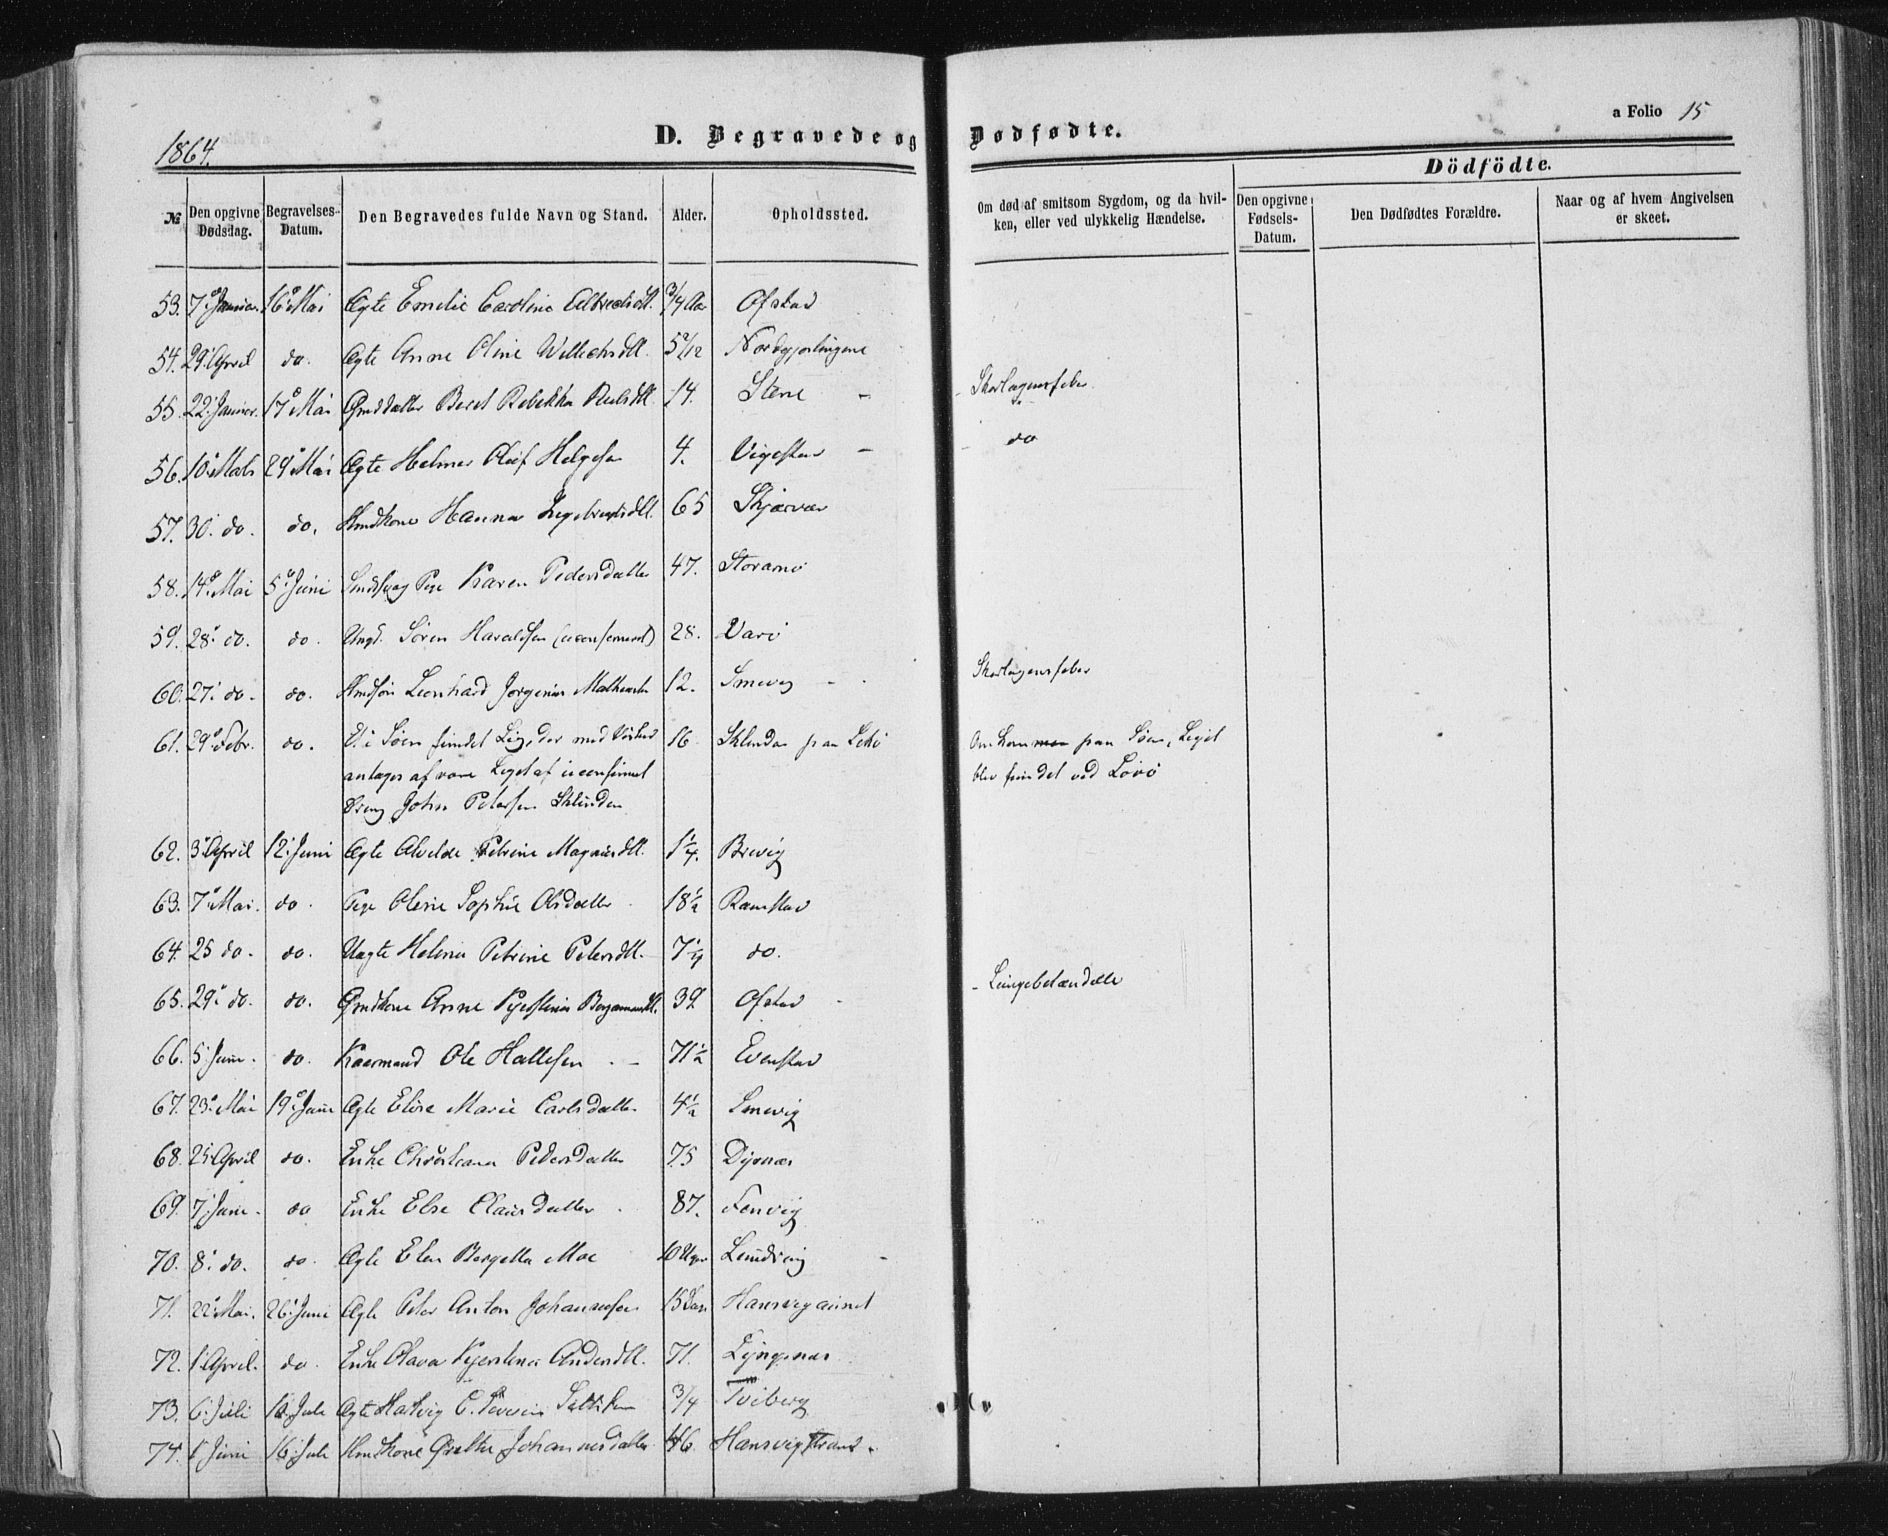 1864.
D. Begravede og Dødfødte.
a Folio 15
№
Den opgivne Dødsdag.
Begravelses-Datum.
Den Begravedes fulde Navn og Stand.
Alder.
Opholdssted.
Om død af smitsom Sygdom, og da hvilken, eller ved ulykkelig Hændelse.
Dödfödte.
Den opgivne Fødsels-Datum.
Den Dødfødtes Forældre.
Naar og af hvem Angivelsen er skeet.
53. 7. Januar. 16 Mai Ægte Emilie Caroline 3/4 Aar Ofstad
54. 29 April do. Ægte Anne Oline 5 Nordgjerlingene
55. 22. Januar. 17 Mai Gmddatter Beret Rebekka 14. Stene - Skarlagensfeber
56. 10. Marts 29 Mai Ægte Helmer Oluf Helgesen 4. Vigestad - do
57. 30. do. do. Hmdkone Hanna Ingebrigtsdtt. 65 Skjærvær
58. 14. Mai 5. Juni Pige Karen Pedersdatter 47. Storamo
59. 28. do. do. Ungd. Søren Haraldsen (uconfirmeret) 28. Varø
60. 27. do. do. Hmdsøn Leonhard Jørginus 12. Smevig Skarlagensfeber
61. 29 Febr. do. Et i Søen fundet Lig, der med 16. Sklinden paa Lekø Omkommen paa Søen, Liget
antages at være Liget af uconfirmeret blev fundet ved Lovø
Dreng John Petersen Sklinden
62. 3. April 12. Juni Ægte Alvilde Petrine Magnusdtt. 1 1/4. Brevig
63. 7. Mai. do. Pige Oline Sophie Olsdatter 18 1/2 Ramstad
64. 25 do. do. Uægte Helena Petrine Petersdtt. 7 1/4 do.
65. 29. do. do. Gmdkone Anne Kjerstina 39 Ofstad - Lungebetændelse
66. 5. Juni. do. Kaarmand Ole Hallesen 71 1/2 Evenstad
67. 23. Mai 19. Juni Ægte Elise Marie Carlsdatter 4 1/2 Smevig
68. April do. Enke Christiana Pedersdatter 75 Dypnæs
69. 7. Juni. do Enke Else Clausdatter 87. Fenvig
70. 8. do. do. Ægte Elen Bergetta Moe 10 Uger Lundring
71. 22 Mai. 26. Juni Ægte Peter Anton Johannesen 13 Hansvigaunet
72. 1. April. do. Enke Olava Kjerstina Andersdtt. 71. Lyngsnæs
73. 6. Juli 10. Juli Ægte Hartvig C. Severin 3/4 Tviberg
74. 1 Juni 16. Juli Hmdkone Grethe Johannesdatter 46. Hansvigstrand